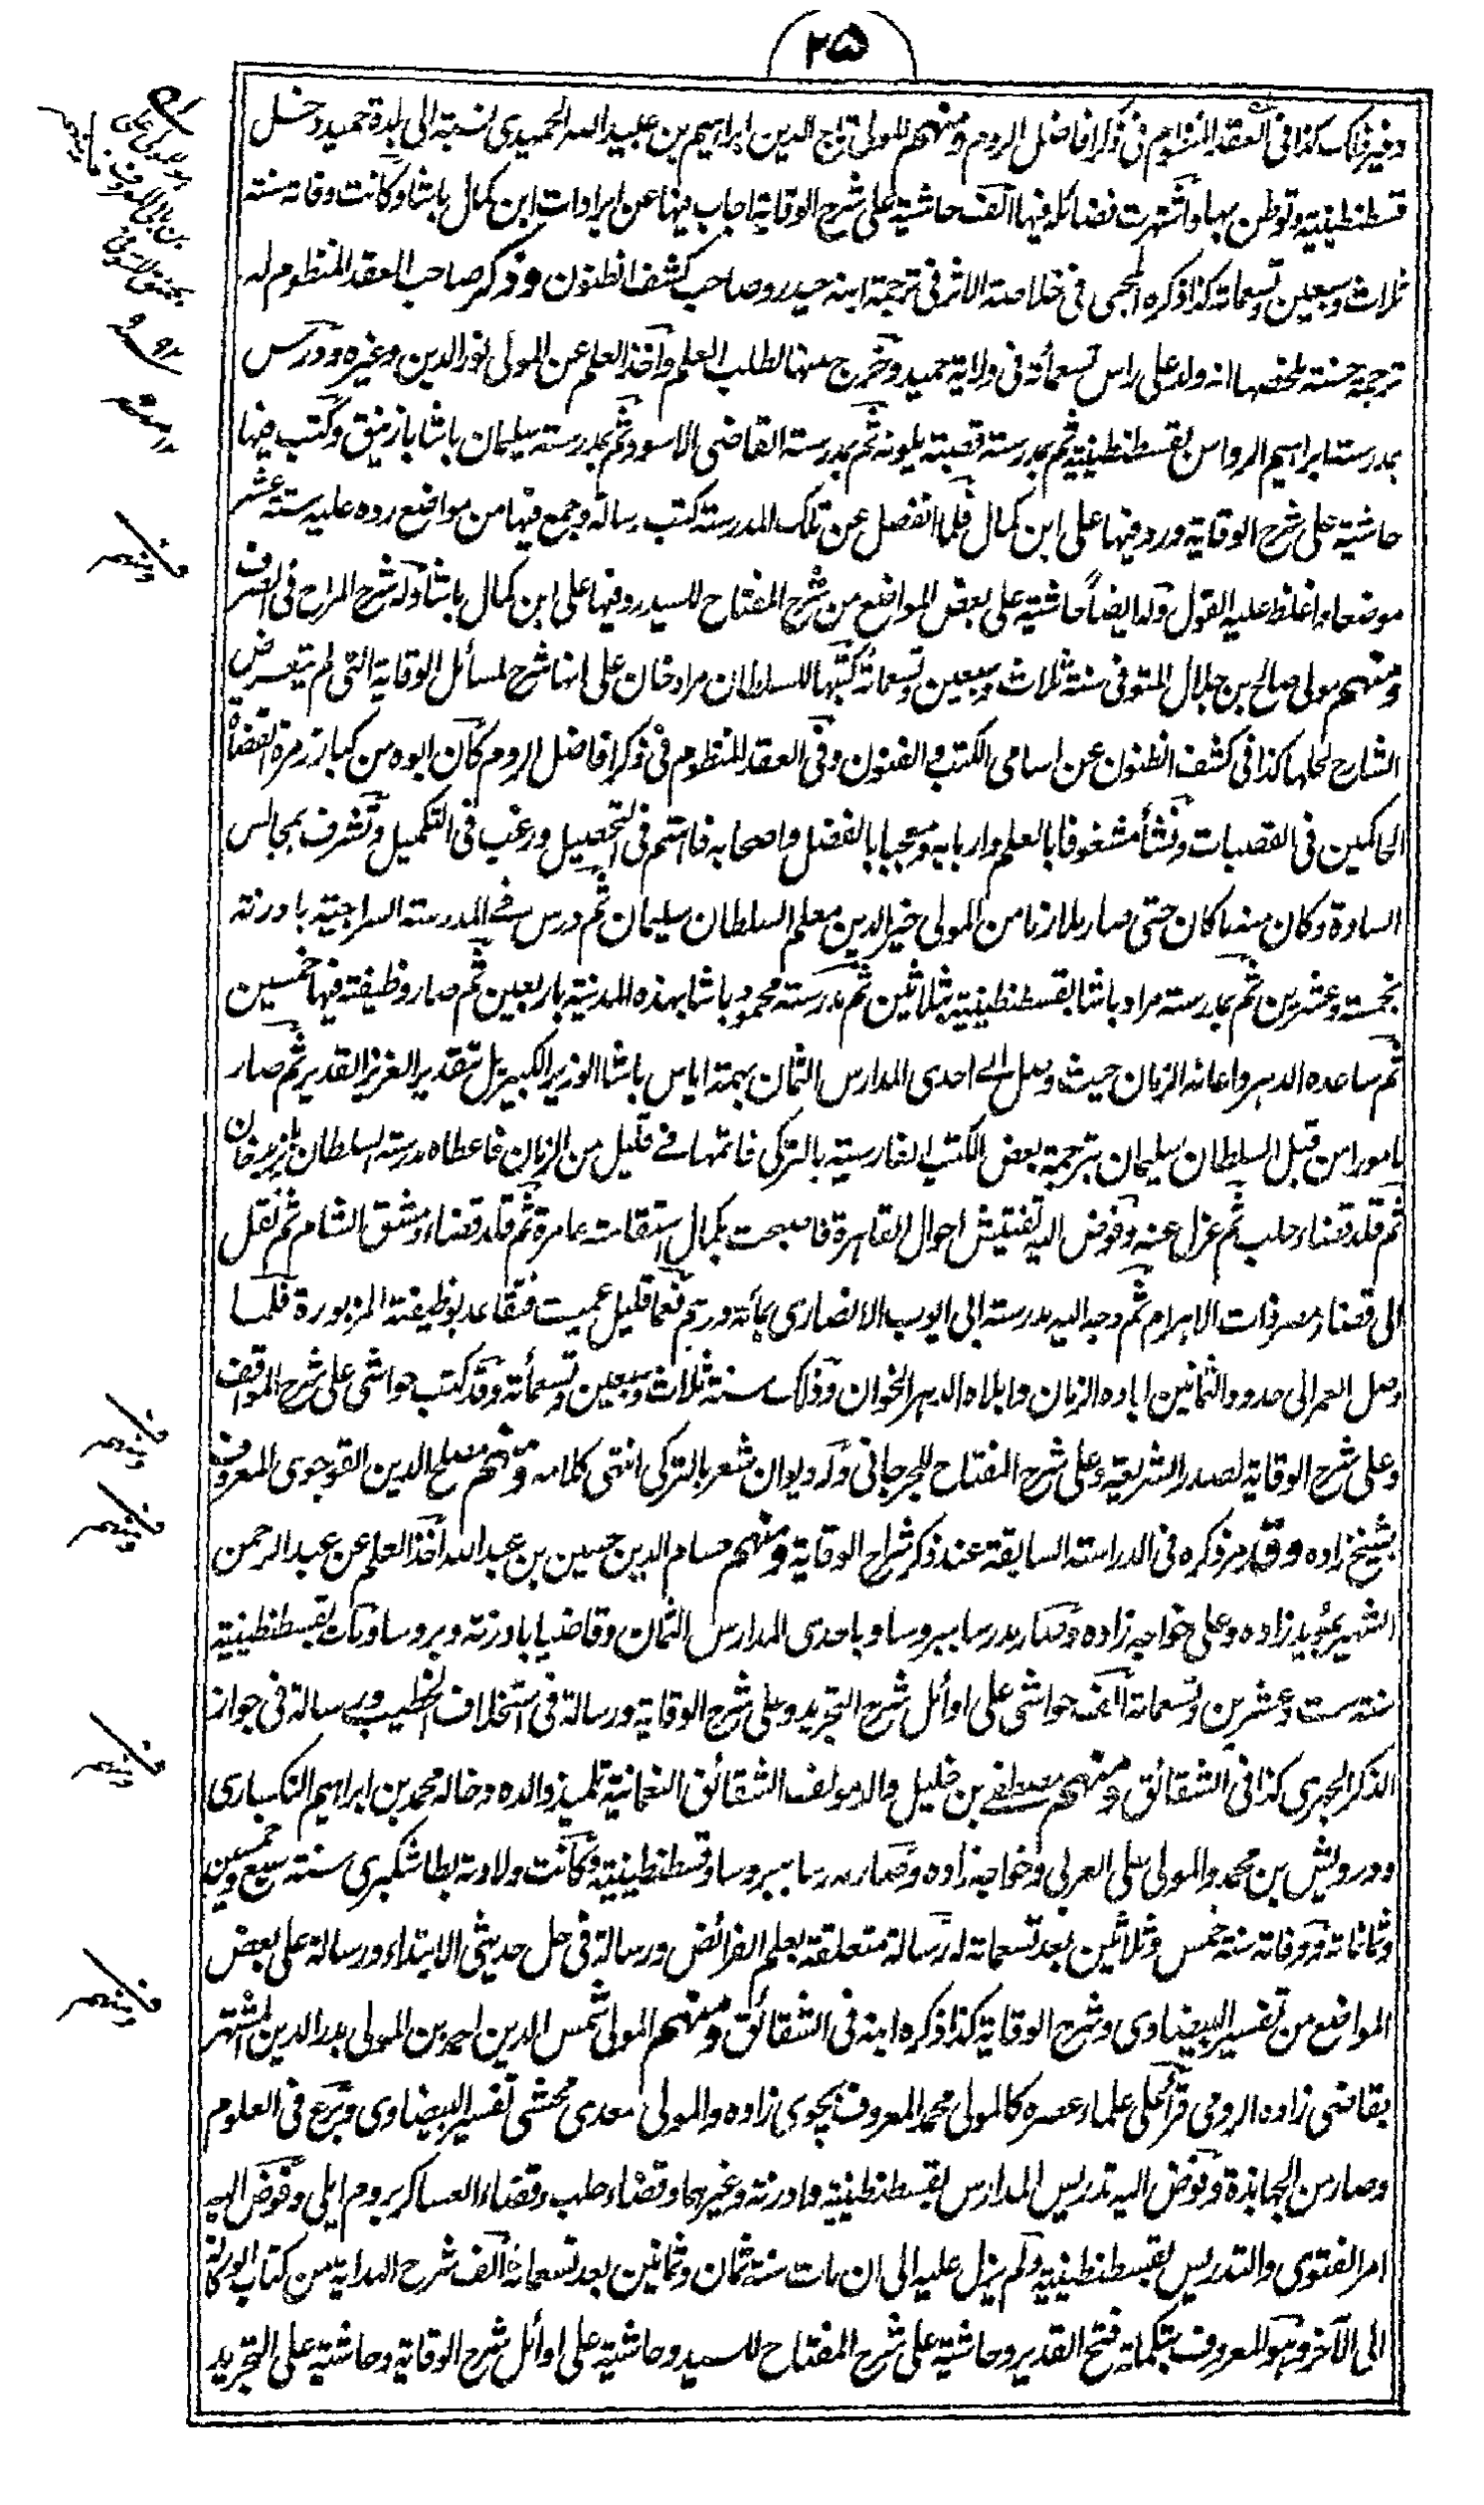 ٢٥
وغير ذلك كذا فى العقد المنظوم فى ذكر افاضل الروم ومنهم المولى تاج الدين ابراهيم بن عبيد الله الحميدى نسبته الى بلدة حميد دخل
قسطنطينية وتوطن بها واشتهرت فضائله فيها الف حاشية على شرح الوقاية اجاب فيها عن ايرادات ابن كمال باشا وكانت وفاته سنة
ثلاث وسبعين وتسعمائة كذا ذكره المحبى فى خلاصة الاثر فى ترجمة ابنه حيدر وصاحب كشف الظنون وذكر صاحب العقد المنظوم له
ترجمة حسنة ملخصها انه ولد على راس تسعمائة فى ولاية حميد وخرج منها لطلب العلم واخذ العلم عن المولى نور الدين وغيره ودرس
بمدرسة ابراهيم الرواس بقسطنطينية ثم بمدرسة قصبة يلونه ثم بمدرسة القاضى الاسود ثم بمدرسة سليمان باشا بازنيق وكتب فيها
حاشية على شرح الوقاية ورد فيها على ابن كمال فلما انفصل عن تلك المدرسة كتب رسالة وجمع فيها من مواضع رده عليه ستة عشر
موضعا واغلظ عليه القول وله ايضاً حاشية على بعض المواضع من شرح المفتاح للسيد رد فيها على ابن كمال باشا وله شرح المراح فى الصرف
ومنهم مولى صالح بن جلال المتوفى سنة ثلاث وسبعين وتسعمائة كتبها للسلطان مراد خان على انها شرح لمسائل الوقاية التى لم يتعرض
الشارح لحلها كذا فى كشف الظنون عن اسامى الكتب والفنون وفى العقد المنظوم فى ذكر افاضل الروم كان ابوه من كبار زمرة القضاة
الحاكمين فى القصبات ونشأ مشغوفا بالعلم واربابه ومعجبا بالفضل واصحابه فاهتم فى التحصيل ورغب فى التكميل وتشرف بمجالس
السادة وكان منها كان حتى صار ملازما من المولى خير الدين معلم السلطان سليمان ثم درس فى المدرسة السراجية بادرنه
بخمسة وعشرين ثم بمدرسة مراد باشا بقسطنطينية بثلاثين ثم بمدرسة محمود باشا بهذه المدينة باربعين ثم صار وظيفته فيها خمسين
ثم ساعده الدهر واعانه الزمان حيث وصل الى احدى المدارس الثمان بهمة اياس باشا الوزير الكبير بل بتقدير العزيز القدير ثم صار
مامورا من قبل السلطان سليمان بترجمة بعض الكتب الفارسية بالتركى فاتمها فى قليل من الزمان فاعطاه مدرسة السلطان بايزيد خان
ثم قلد قضاء حلب ثم عزل عنه وفوض اليه تفتيش احوال القاهرة فاصبحت بكمال استقامته عامرة ثم قلد قضاء دمشق الشام ثم نقل
الى قضاء مصر ذات الاهرام ثم وجه اليه مدرسة ابى ايوب الانصارى بمائة درهم فعما قليل عميت فتقاعد بوظيفته المزبورة فلما
وصل العمر الى حدود الثمانين اباده الزمان وابلاه الدهر الخوان وذلك سنة ثلاث وسبعين وتسعمائة وقد كتب حواشى على شرح المواقف
وعلى شرح الوقاية لصدر الشريعة وعلى شرح المفتاح للجرجانى وله ديوان شعر بالتركى انتهى كلامه ومنهم مصلح الدين القوجوى المعروف
بشيخ زاده وقد مر ذكره فى الدراسة السابقة عند ذكر شراح الوقاية ومنهم حسام الدين حسين بن عبد الله اخذ العلم عن عبد الرحمن
الشهير بمؤيد زاده وعلى خواجه زاده وصار مدرسا ببروسا وباحدى المدارس الثمان وقاضيا بادرنه وبروسا ومات بقسطنطينية
سنة ست وعشرين وتسعمائة الف حواشى على اوائل شرح التجريد وعلى شرح الوقاية ورسالة فى استخلاف الخطيب ورسالة فى جواز
الذكر الجهرى كذا فى الشقائق ومنهم مصطفى بن خليل والد مولف الشقائق النعمانية تلميذ والده وخاله محمد بن ابراهيم النكسارى
ودرويش بن محمد والمولى على العربى وخواجه زاده وصار مدرسا ببروسا وقسطنطينية وكانت ولادته بطاشكبرى سنة سبع وخمسين
وثمانمائة ووفاته سنة خمس وثلاثين بعد تسعمائة له رسالة متعلقة بعلم الفرائض ورسالة فى حل حديثى الابتداء ورسالة على بعض
المواضع من تفسير البيضاوى وشرح الوقاية كذا ذكره ابنه فى الشقائق ومنهم المولى شمس الدين احمد بن المولى بدر الدين المشتهر
بقاضى زاده الرومى قرأ على علماء عصره كالمولى محمد المعروف بچوى زاده والمولى سعدى محشى تفسير البيضاوى وبرع فى العلوم
وصار من الجهابذة وفوض اليه تدريس المدارس بقسطنطينية وادرنة وغيرهما وقضاء حلب وقضاء العساكر بروم ايلى وفوض اليه
امر الفتوى والتدريس بقسطنطينية ولم يزل عليه الى ان مات سنة ثمان وثمانين بعد تسعمائة الف شرح الهداية من كتاب الوكالة
الى الآخر وهو المعروف بتكملة فتح القدير وحاشية على شرح المفتاح للسيد وحاشية على اوائل شرح الوقاية وحاشية على التجريد